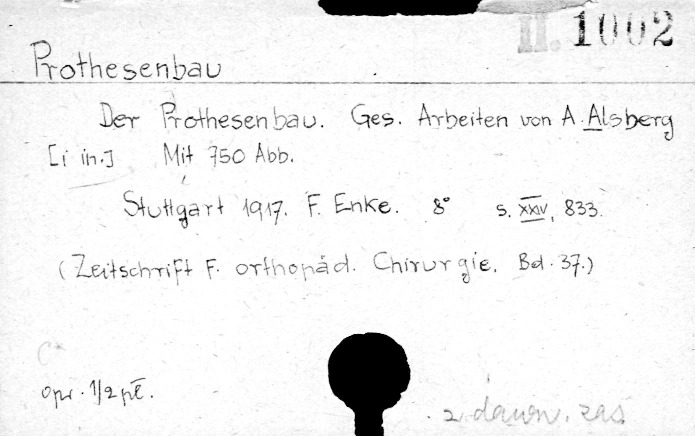 II. 1002
Prothesenbau
Der Prothesenbau. Ges. Arbeiten von A. Alsberg
[i in.] Mit 750 Abb.
Stuttgart 1917. F. Enke. 8° s. XXIV, 833.
(Zeitschrift F. orthopäd. Chirurgie. Bd. 37.)
opr. 1/2 pł.
z dawn. zas.